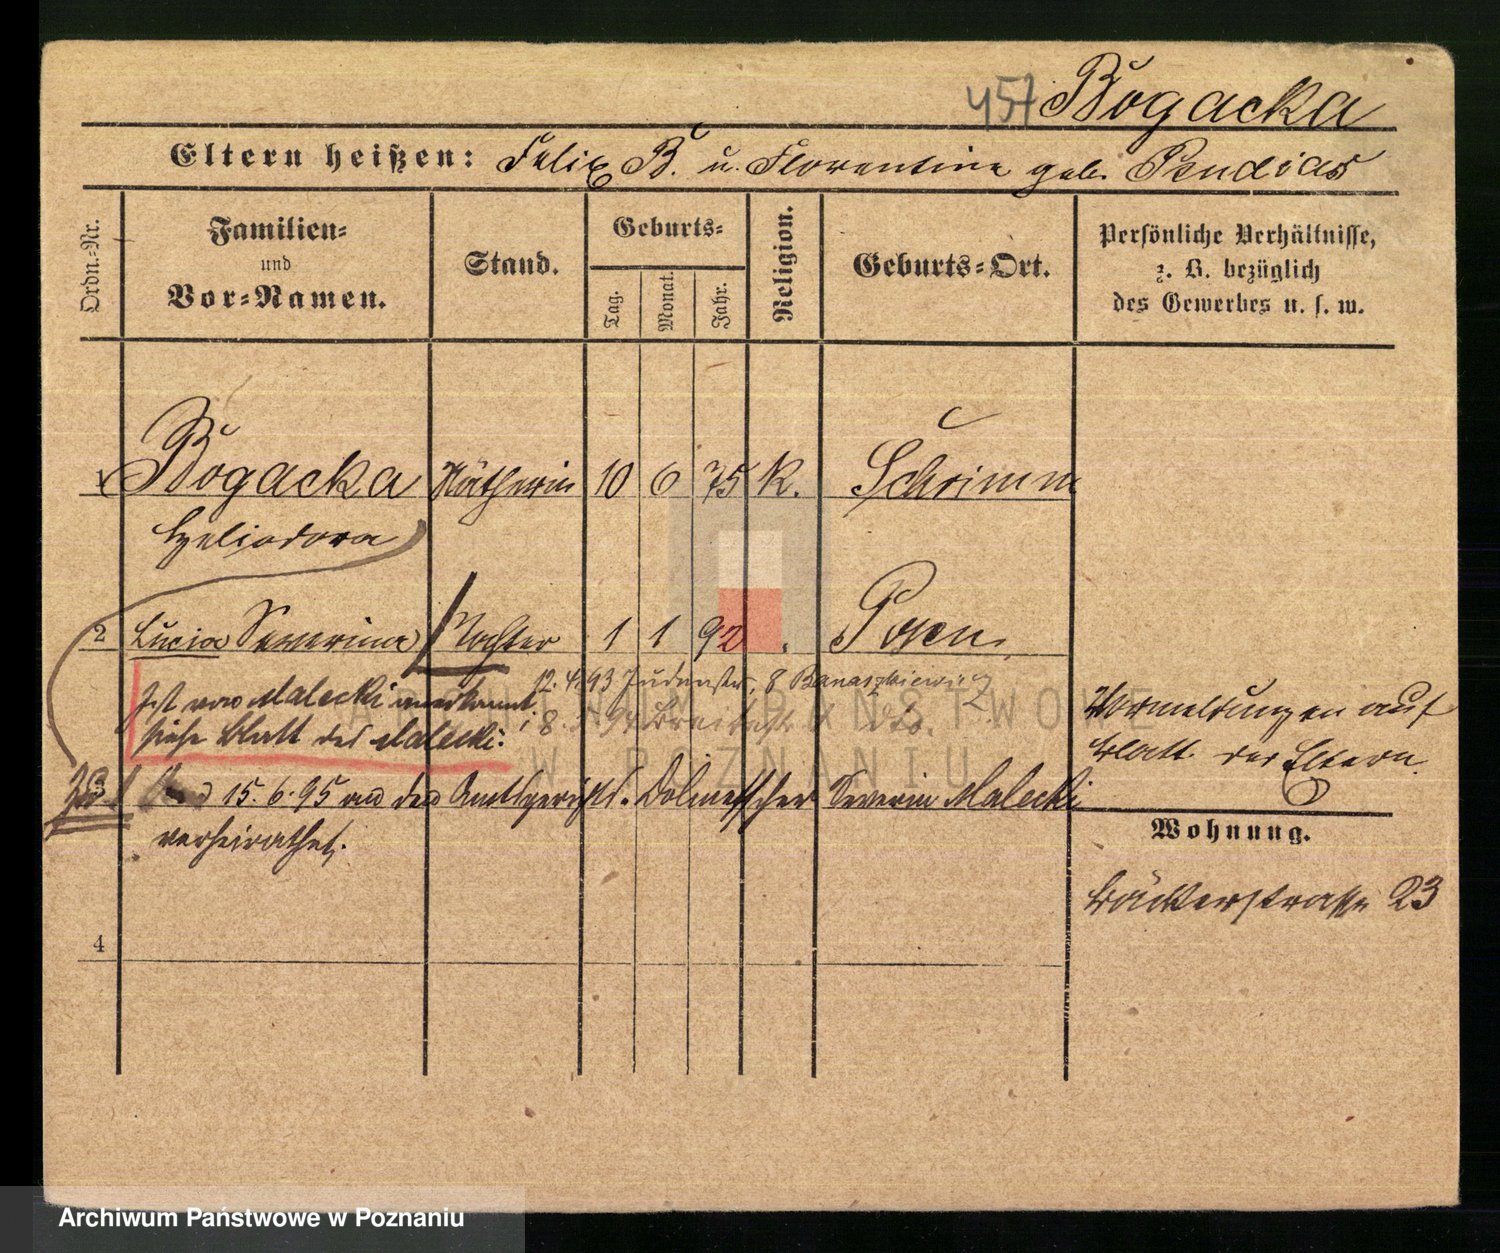 457 Bogacka
Eltern heißen: Felix B. u. Florentine geb. Pendias
Ordn.-Nr.
Familien-
und
Vor-Namen.
Stand.
Geburts-
Tag.
Monat.
Jahr.
Religion.
Geburts-Ort.
Persönliche Verhältnisse,
z. B. bezüglich
des Gewerbes u. s. w.
1 Bogacka Nätherin 10 6 75 K. Schrimm
Heliodora
2 Lucia Severina Tochter 1 1 92 Posen
12.4.93 Judenstr. 8 Banaszkiewicz
Ist von Malecki anerkannt,
siehe Blatt des Malecki.
Vormeldungen auf
Blatt der Eltern.
3 15.6.95 an den Amtsgerichts-Dolmetscher Severin Malecki
verheirathet.
Wohnung.
Bäckerstrasse 23
4
ARCHIWUM PAŃSTWOWE
W POZNANIU
Archiwum Państwowe w Poznaniu